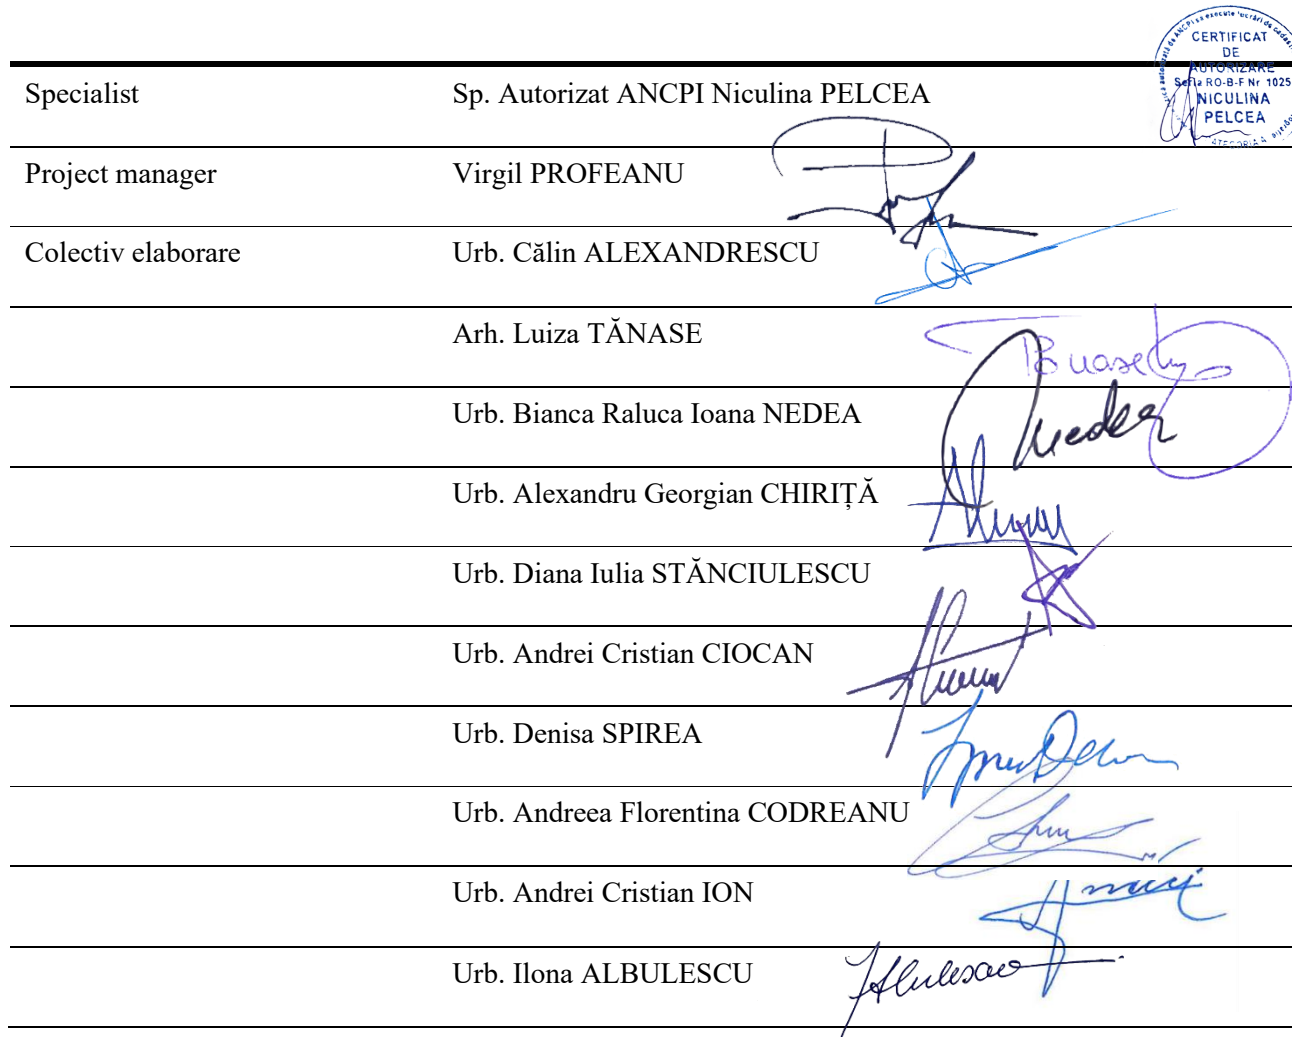 CERTIFICAT
DE
AUTORIZARE
Seria RO-B-F Nr 1025
NICULINA
PELCEA
Specialist Sp. Autorizat ANCPI Niculina PELCEA
Project manager Virgil PROFEANU
Colectiv elaborare Urb. Călin ALEXANDRESCU
Arh. Luiza TĂNASE
Urb. Bianca Raluca Ioana NEDEA
Nedea
Urb. Alexandru Georgian CHIRIȚĂ
Urb. Diana Iulia STĂNCIULESCU
Urb. Andrei Cristian CIOCAN
Urb. Denisa SPIREA
Urb. Andreea Florentina CODREANU
Urb. Andrei Cristian ION
Urb. Ilona ALBULESCU
Albulescu